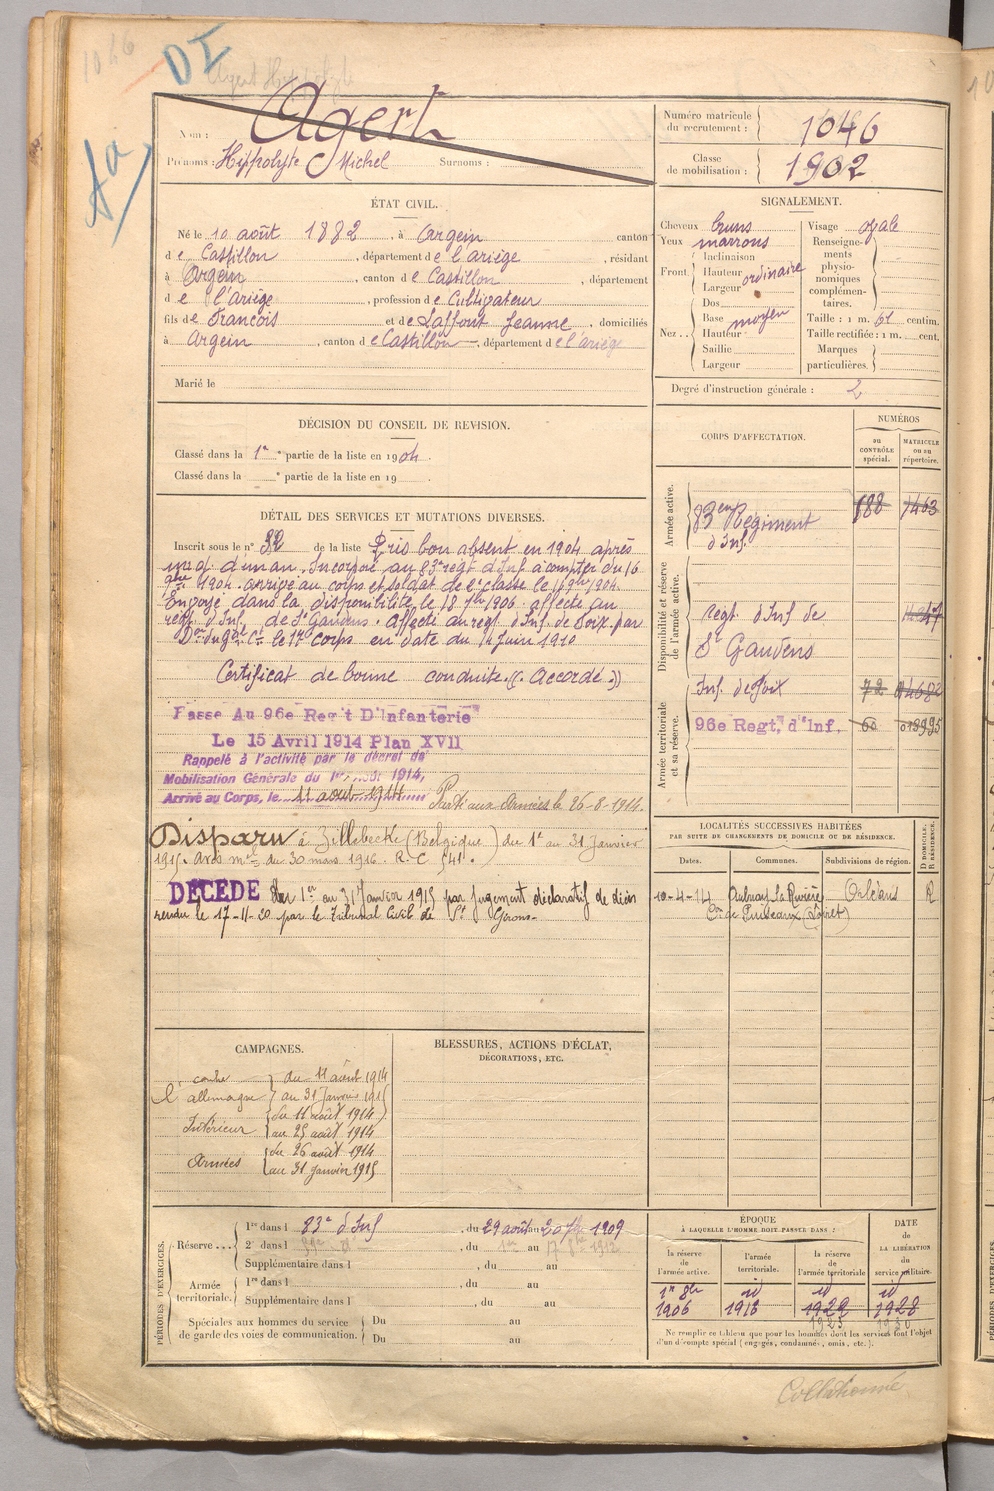 1046
DI
Agert Hippolyte
Aa
Nom : Agert
Prénoms : Hippolyte Michel Surnoms :
Numéro matricule du recrutement : 1046
Classe de mobilisation : 1902
ÉTAT CIVIL.
Né le 10 août 1882, à Argein canton
de Castillon, département de l'ariège, résidant
à Argein, canton de Castillon, département
de l'ariège, profession de Cultivateur
fils de Francois et de Laffont Jeanne, domiciliés
à Argein, canton de Castillon, département de l'ariége
Marié le
SIGNALEMENT.
Cheveux bruns
Yeux marrons
Front Inclinaison
Hauteur ordinaire
Largeur
Nez Dos
Base moyen
Hauteur
Saillie
Largeur
Visage ovale
Renseignements physionomiques complémentaires.
Taille : 1 m. 61 centim.
Taille rectifiée : 1 m. cent.
Marques particulières.
Degré d'instruction générale : 2
DÉCISION DU CONSEIL DE REVISION.
Classé dans la 1re partie de la liste en 1904.
Classé dans la e partie de la liste en 19
DÉTAIL DES SERVICES ET MUTATIONS DIVERSES.
Inscrit sous le n° 32 de la liste Pris bon absent en 1904 après
d'un an. Incorporé au 83e regt d'Inf à compter du 16
9bre 1904. arrivé au corps et soldat de 2e classe le 16 9bre 1904.
Envoyé dans la disponibilité le 18 7bre 1906. affecté au
régt d'Inf. de St Gaudens. Affecté au regt d'Inf. de Foix par
Don du Gal Ct le 17e Corps en date du 1 Juin 1910
Certificat de bonne conduite « Accordé »
Passe Au 96e Reg't D'Infanterie
Le 15 Avril 1914 Plan XVII
Rappelé à l'activité par le décret de
Mobilisation Générale du 1er août 1914,
Arrivé au Corps, le 11 aout 1914 Parti aux Armées le 26-8-1914.
Disparu à Zillebecke (Belgique) du 1er au 31 Janvier
1915. Avis mel du 30 mars 1916. R.C 541.
DÉCÉDÉ du 1er au 31 Janvier 1915 par jugement déclaratif de décès
rendu le 17-11-20 par le Tribunal Civil de St Girons-
CORPS D'AFFECTATION.
NUMÉROS
au CONTRÔLE spécial.
MATRICULE ou au répertoire.
Armée active.
83eme Régiment d'Inf. 188 7463
Disponibilité et réserve de l'armée active.
régt d'Inf de
St Gaudens
Armée territoriale et sa réserve.
Inf. de Foix 72
96e Regt, d'Inf. 60 013995
LOCALITÉS SUCCESSIVES HABITÉES
PAR SUITE DE CHANGEMENTS DE DOMICILE OU DE RÉSIDENCE.
Dates. Communes. Subdivisions de région. D DOMICILE. R RÉSIDENCE.
10-4-14 Aulnay la Rivière Orléans R
Con de Puiseaux (Loiret)
CAMPAGNES.
contre l'allemagne du 11 août 1914
au 31 Janvier 1915
Intérieur du 11 août 1914
au 25 août 1914
Armées du 26 août 1914
au 31 janvier 1915
BLESSURES, ACTIONS D'ÉCLAT,
DÉCORATIONS, ETC.
PÉRIODES D'EXERCICES.
Réserve 1re dans l 83e d'Inf, du 29 août au 20 7bre 1909
2e dans l , du 1er au 17 1912
Supplémentaire dans l , du au
Armée territoriale. 1re dans l , du au
Supplémentaire dans l , du au
Spéciales aux hommes du service de garde des voies de communication. Du au
Du au
ÉPOQUE
À LAQUELLE L'HOMME DOIT PASSER DANS :
la réserve de l'armée active.
l'armée territoriale.
la réserve de l'armée territoriale
DATE de LA LIBÉRATION du service militaire.
1er 8bre id id id
1906 1918 1922 1928
Ne remplir ce tableau que pour les hommes dont les services font l'objet
d'un décompte spécial (engagés, condamnés, omis, etc.).
Collationné